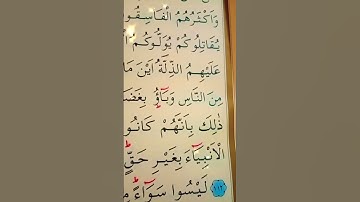 وَاَكْثَرُهُمُ الْفَاسِقُو
يُقَاتِلُوكُمْ يُوَلُّوكُمُ
عَلَيْهِمُ الذِّلَّةُ اَيْنَ مَا
مِنَ النَّاسِ وَبَٓاؤُ بِغَضَ
ذٰلِكَ بِاَنَّهُمْ كَانُو
الْاَنْبِيَٓاءَ بِغَيْرِ حَقٍّ
لَيْسُوا سَوَٓاءً